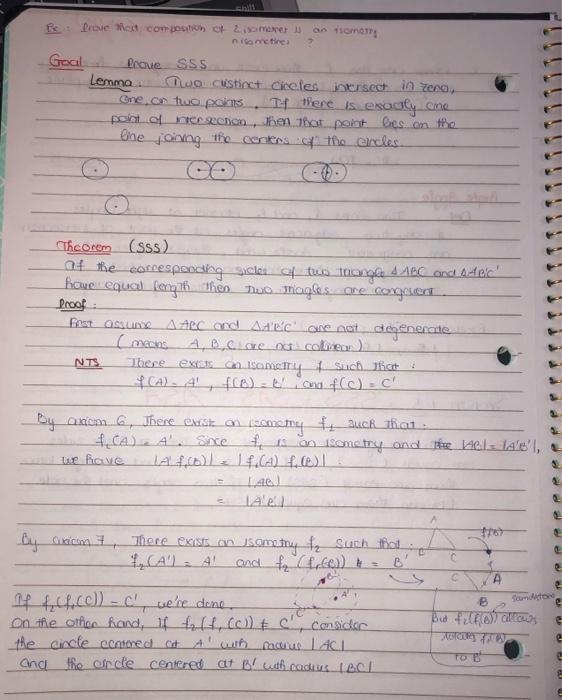 Ps: Prove that composition of 2 isometries is an isometry
n isometries ?
Goal Prove SSS
Lemma: Two distinct circles intersect in zero,
one, or two points. If there is exactly one
point of intersection, then that point lies on the
line joining the centers of the circles.
Theorem (SSS)
If the corresponding sides of two triangle Δ ABC and Δ A'B'C'
have equal length then two triagles are congruent.
Proof:
First assume Δ ABC and Δ A'B'C' are not degenerate
(means A, B, C are not collinear)
NTS There exists an isometry f such that:
f(A) = A', f(B) = B', and f(C) = C'
By axiom 6, There exist an isometry f₁ such that:
f₁(A) = A'. Since f₁ is an isometry and |AB| = |A'B'|,
we have |A' f₁(B)| = |f₁(A) f₁(B)|
= |AB|
= |A'B'|
By axiom 7, There exists an isometry f₂ such that:
f₂(A') = A' and f₂(f₁(B)) = B'
A
B C
f(B)
C A
B
B'
A'
C'
If f₂(f₁(C)) = C', we're done.
On the other hand, if f₂(f₁(C)) ≠ C', consider
the circle centered at A' with radius |AC|
and the circle centered at B' with radius |BC|
But f₂(f₁(B)) allows
rotates f₁(B)
to B'